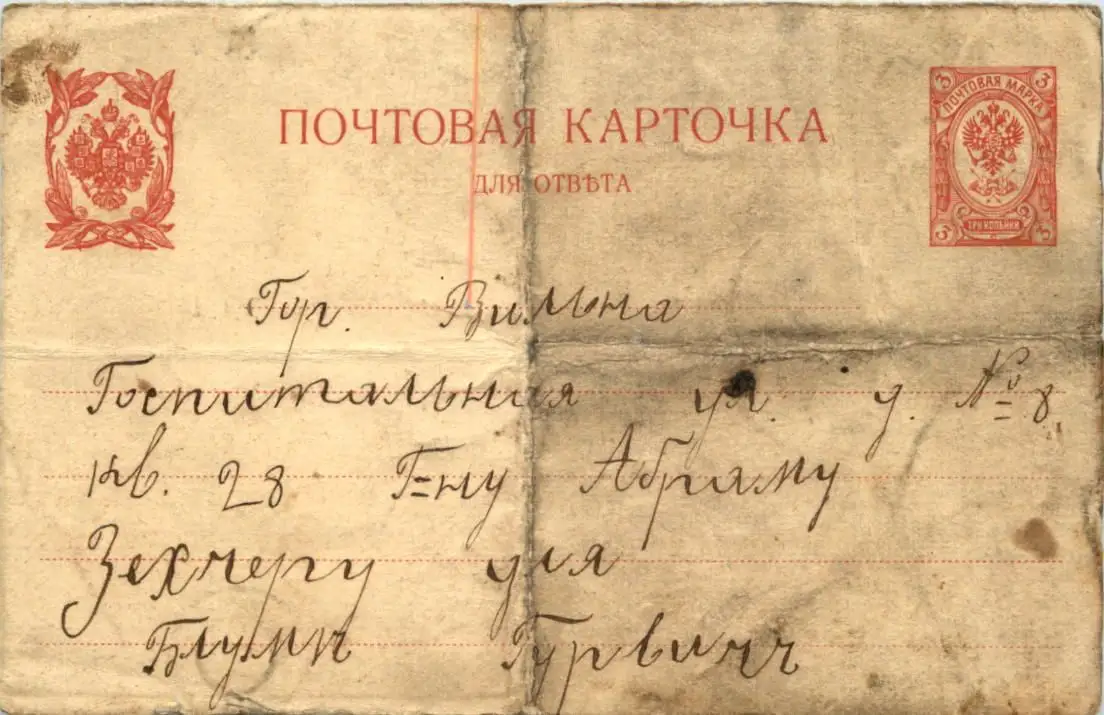 ПОЧТОВАЯ КАРТОЧКА
ДЛЯ ОТВѢТА
3 3
ПОЧТОВАЯ МАРКА
ТРИ КОПѢЙКИ
3 3
Гор. Вильна
Госпитальная ул. д. № 8
кв. 28 Г=ну Абраму
Зехчеру для
Блумы Гурвичъ